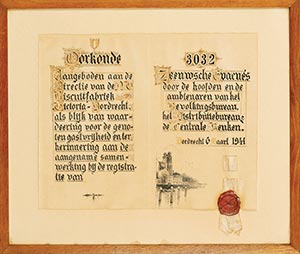 Oorkonde
Aangeboden aan de
Directie van de
Biscuitfabriek
Victoria Dordrecht,
als blijk van waar-
deering voor de geno-
ten gastvrijheid en ter
herinnering aan de
aangename samen-
werking bij de registra-
tie van
3032
Zeeuwsche Evacués
door de hoofden en de
ambtenaren van het
Bevolkingsbureau,
het Distributiebureau
de Centrale Keuken.
Dordrecht 6 Maart 1944